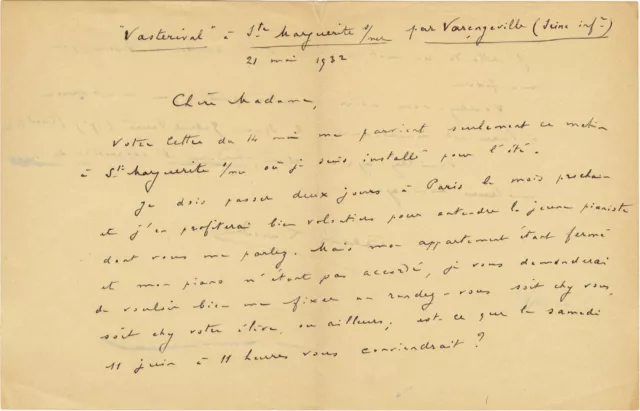 "Vasterival" à Ste Marguerite s/mer par Varengeville (Seine infre)
21 mai 1932
Chère Madame,
Votre lettre du 14 mai me parvient seulement ce matin
à Ste Marguerite s/mer où je suis installé pour l'été.
Je dois passer deux jours à Paris le mois prochain
et j'en profiterai bien volontiers pour entendre la jeune pianiste
dont vous me parlez. Mais mon appartement étant fermé
et mon piano n'étant pas accordé, je vous demanderai
de vouloir bien me fixer un rendez-vous soit chez vous,
soit chez votre élève, ou ailleurs; est-ce que le samedi
11 juin à 11 heures vous conviendrait ?